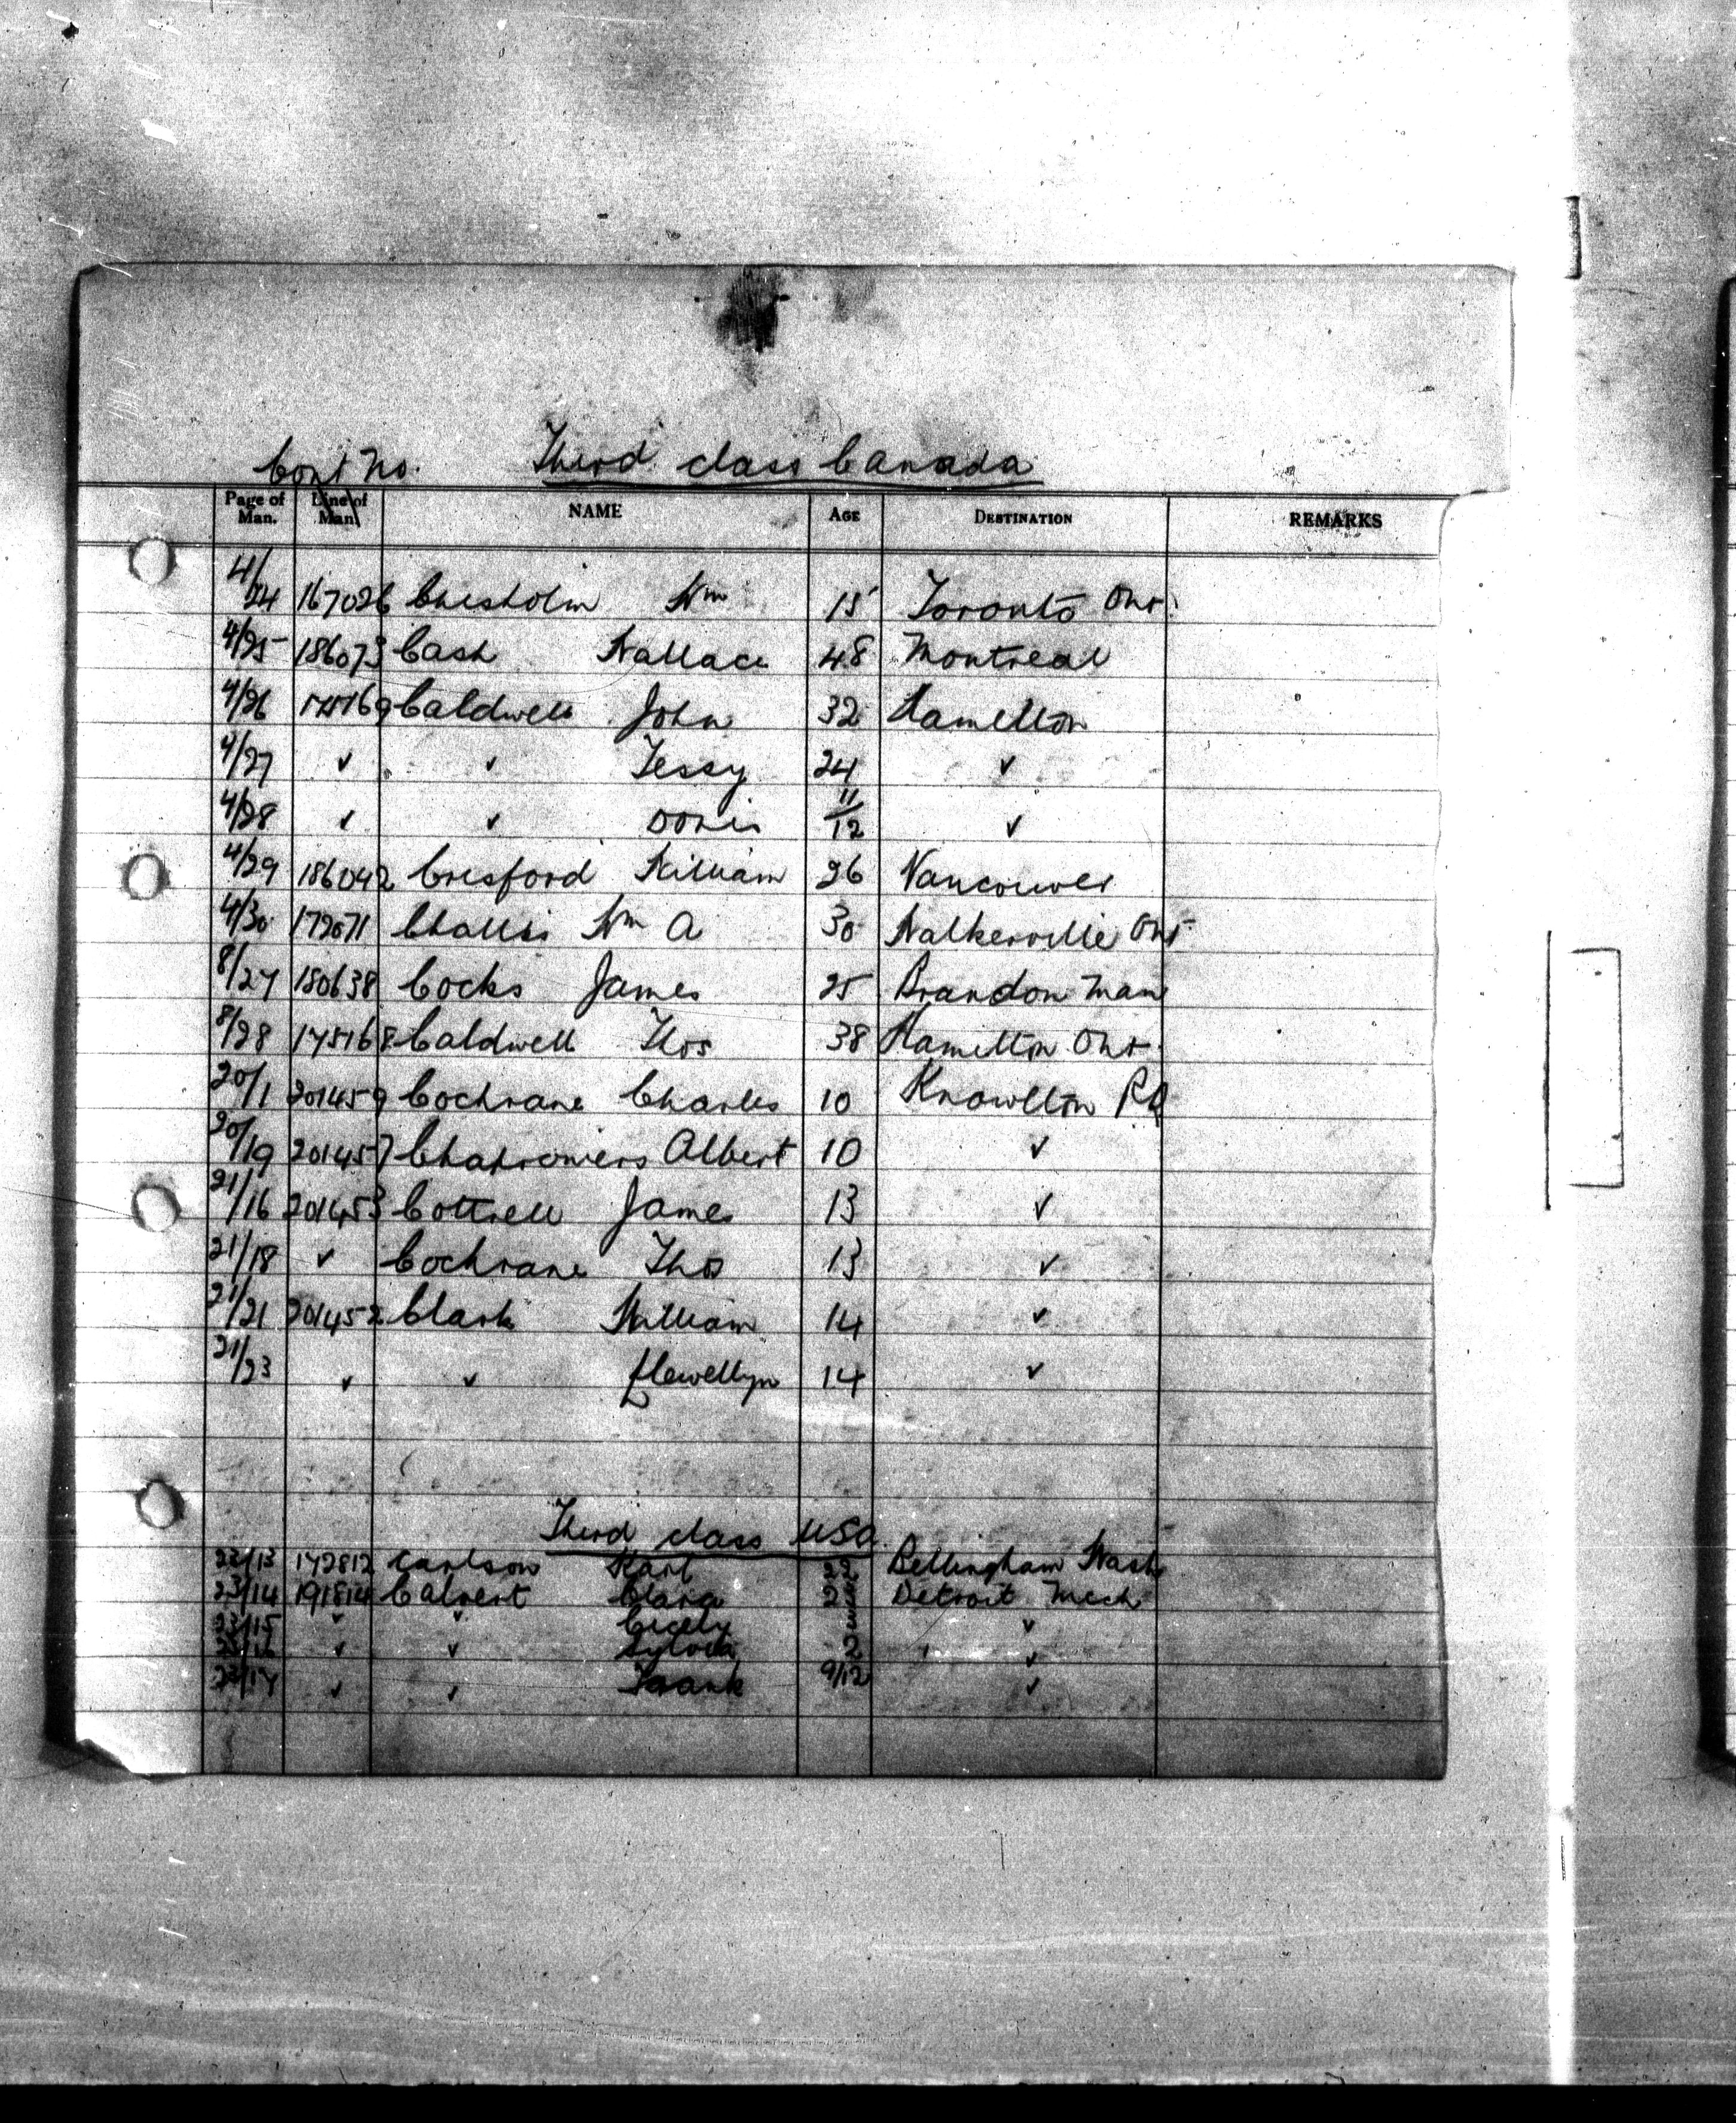 Cont No. Third class Canada
Page of Man. Line of Man. NAME AGE DESTINATION REMARKS
4/24 167026 Chesholm Wm 15 Toronto Ont.
4/25 186073 Cash Wallace 48 Montreal
4/26 175169 Caldwell John 32 Hamelton
4/27 ✓ ✓ Jessy 24 ✓
4/28 ✓ ✓ Doris 11/12 ✓
4/29 186042 Cresford William 26 Vancouver
4/30 172071 Challis Wm A 30 Walkerville Ont
8/27 180638 Cocks James 25 Brandon Man
8/28 175168 Caldwell Thos 38 Hamelton Ont.
20/1 201459 Cochrane Charles 10 Knowlton PQ
20/19 201457 Albert 10 ✓
21/16 201453 Cottrell James 13 ✓
21/18 ✓ Cochrane Thos 13 ✓
21/21 201452 Clark William 14 ✓
21/23 ✓ ✓ Llewellyn 14 ✓
Third class USA.
23/13 172812 Carlson Karl 22 Bellingham Wash
23/14 191814 Calvert Clara Detroit Mech
23/15 ✓ ✓ Cicely ✓
23/16 ✓ ✓ Sylvia 2 ✓
23/17 ✓ ✓ Frank 9/12 ✓